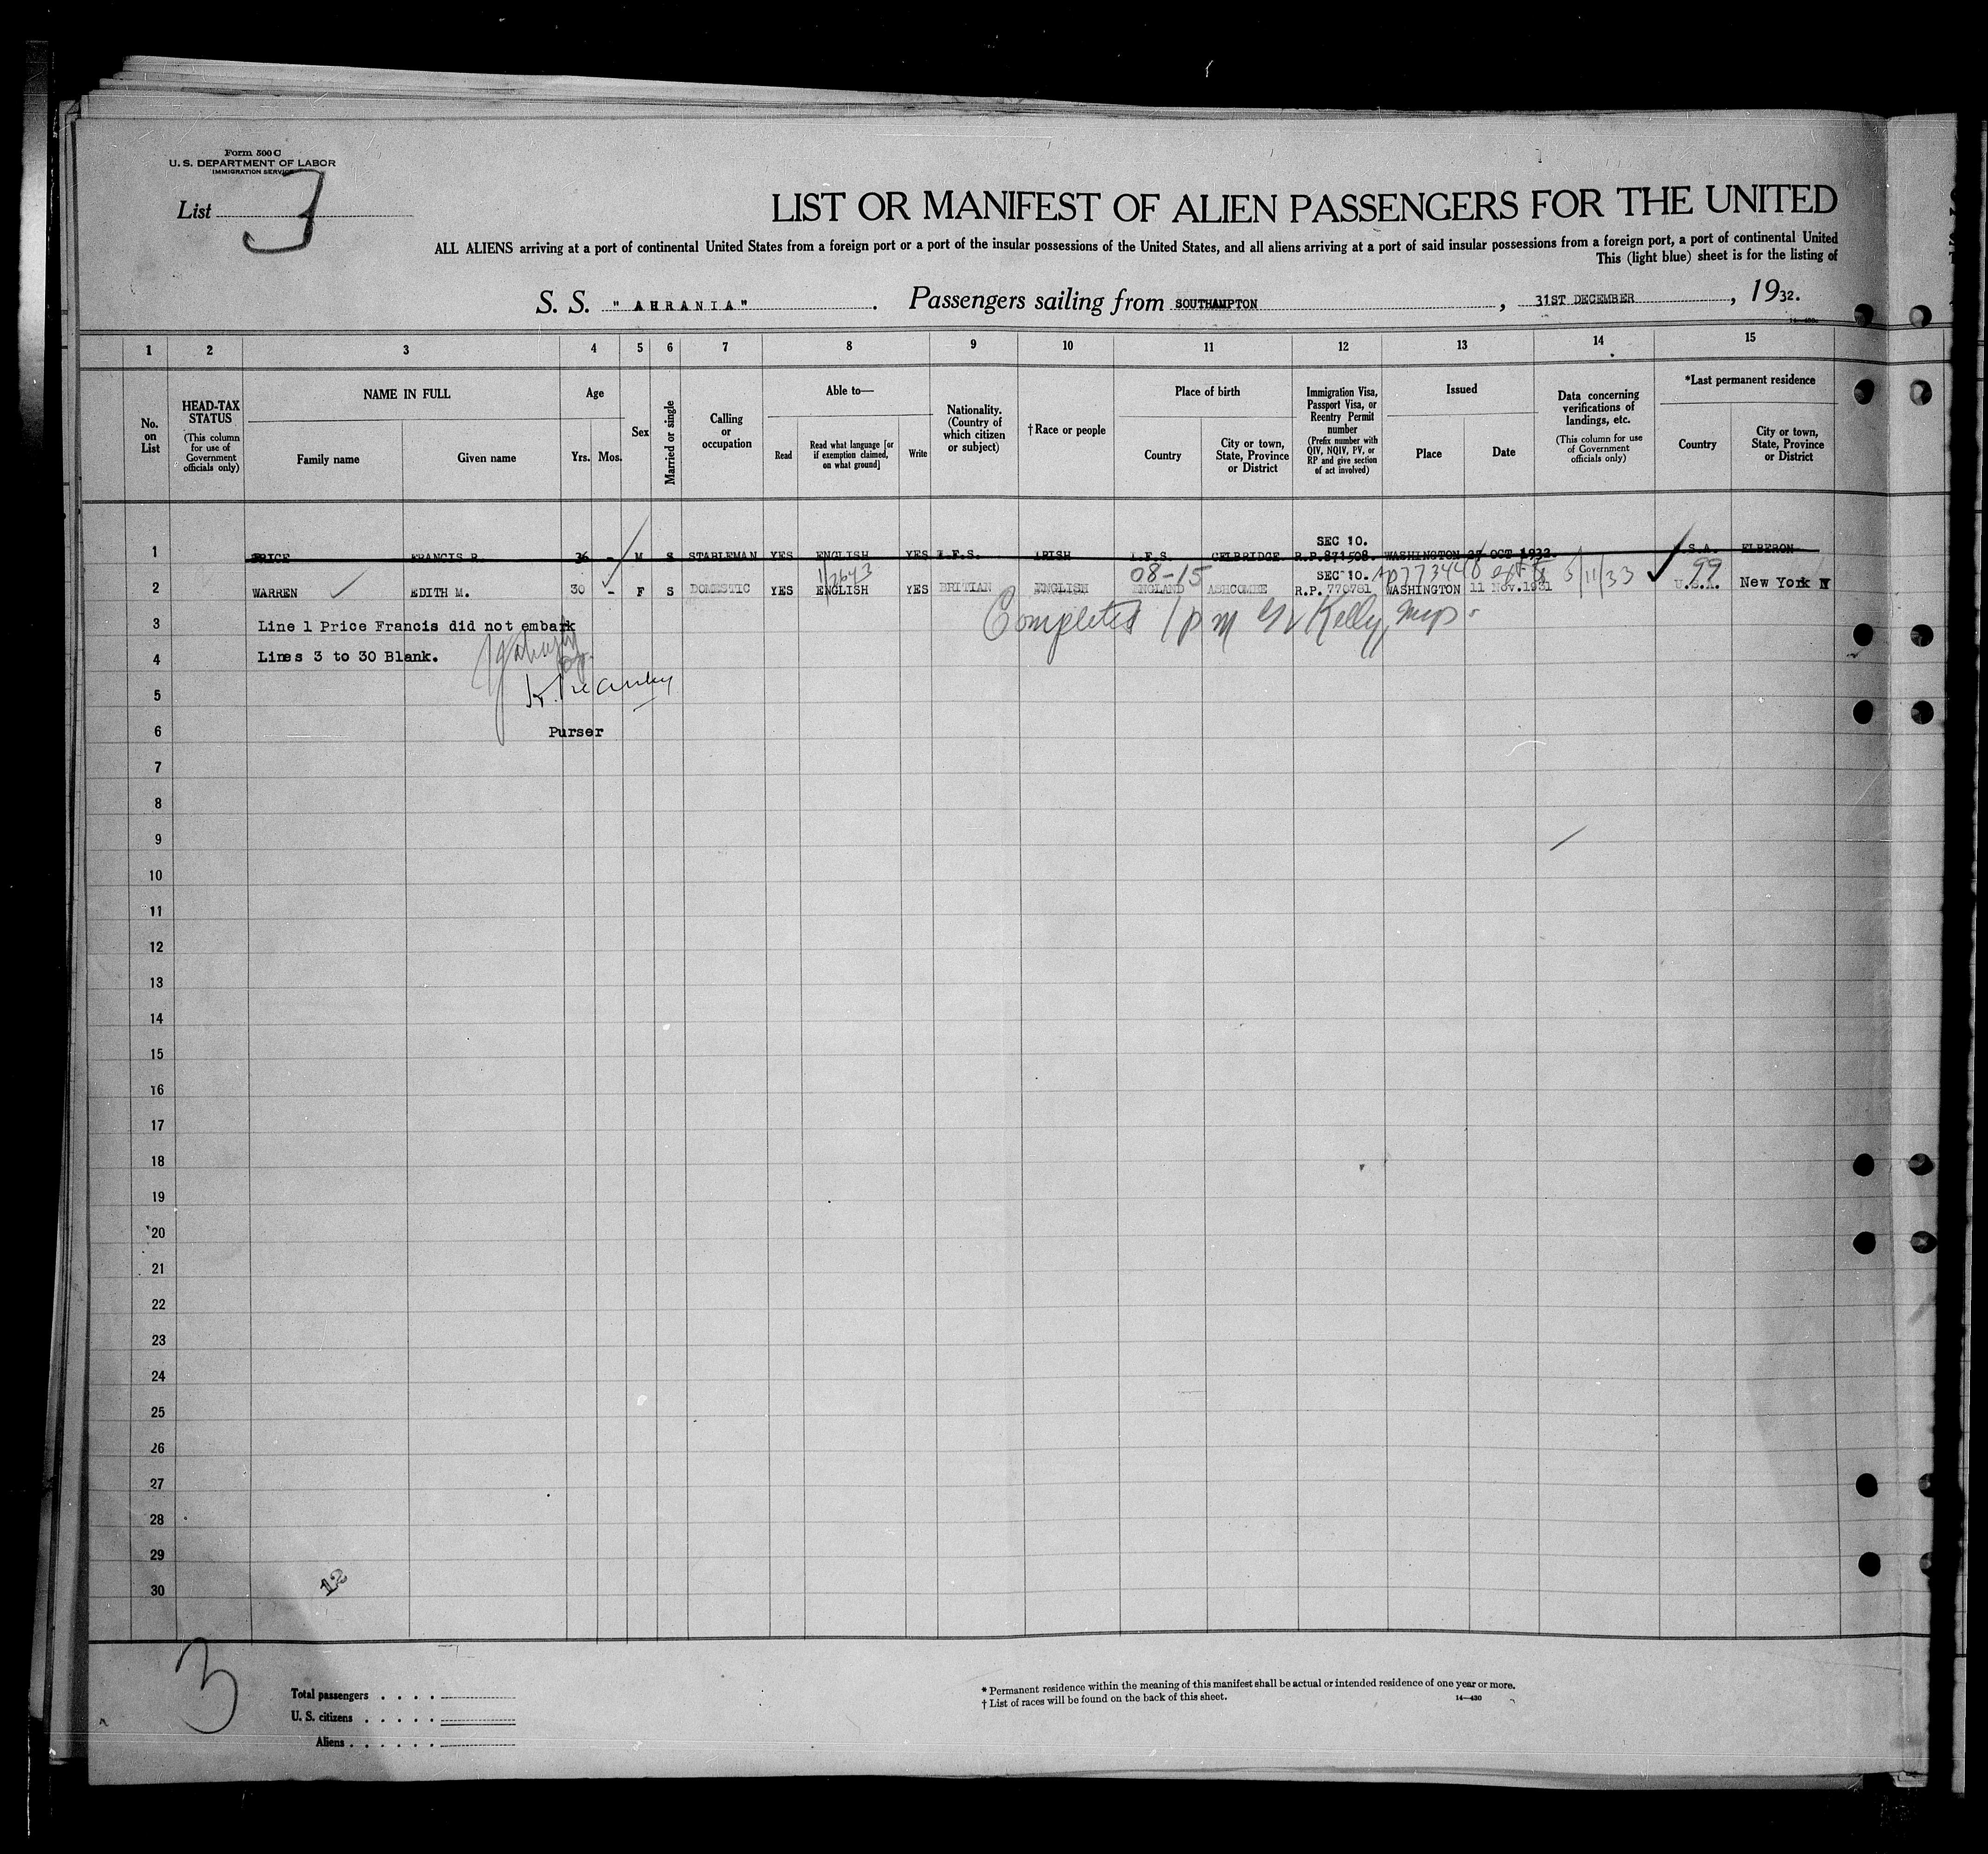 Form 500 C
U. S. DEPARTMENT OF LABOR
IMMIGRATION SERVICE
List 3
LIST OR MANIFEST OF ALIEN PASSENGERS FOR THE UNITED
ALL ALIENS arriving at a port of continental United States from a foreign port or a port of the insular possessions of the United States, and all aliens arriving at a port of said insular possessions from a foreign port, a port of continental United
This (light blue) sheet is for the listing of
S. S. "AHRANIA". Passengers sailing from SOUTHAMPTON, 31ST DECEMBER, 1932.
1 2 3 4 5 6 7 8 9 10 11 12 13 14 15
No. on List
HEAD-TAX STATUS (This column for use of Government officials only)
NAME IN FULL
Family name Given name
Age
Yrs. Mos.
Sex
Married or single
Calling or occupation
Able to—
Read Read what language [or if exemption claimed, on what ground] Write
Nationality. (Country of which citizen or subject)
†Race or people
Place of birth
Country City or town, State, Province or District
Immigration Visa, Passport Visa, or Reentry Permit number (Prefix number with QIV, NQIV, PV, or RP and give section of act involved)
Issued
Place Date
Data concerning verifications of landings, etc. (This column for use of Government officials only)
*Last permanent residence
Country City or town, State, Province or District
SEC 10.
1 PRICE FRANCIS R. 36 - M S STABLEMAN YES ENGLISH YES I.F.S. IRISH I.F.S. CELBRIDGE R.P.871508. WASHINGTON 27 OCT 1932. U.S.A. ELBERON
08-15 SEC 10. 5/11/33 99
2 WARREN EDITH M. 30 - F S DOMESTIC YES ENGLISH YES BRITIAN ENGLISH ENGLAND ASHCOMBE R.P. 770781 WASHINGTON 11 NOV.1931 U.S.A. New York
3 Line 1 Price Francis did not embark Completed 1 pm Kelly
4 Lines 3 to 30 Blank.
5
6 Purser
7
8
9
10
11
12
13
14
15
16
17
18
19
20
21
22
23
24
25
26
27
28
29
30
12
3
Total passengers
U. S. citizens
Aliens
* Permanent residence within the meaning of this manifest shall be actual or intended residence of one year or more.
† List of races will be found on the back of this sheet.
14—430